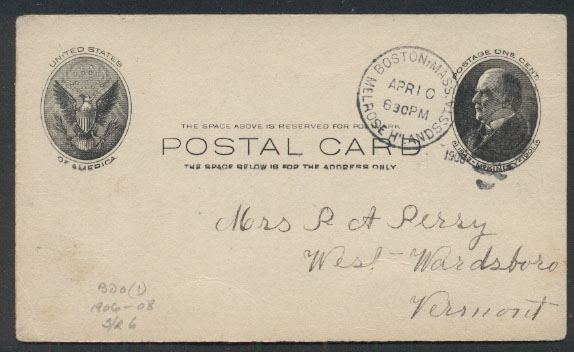 UNITED STATES
OF AMERICA
BOSTON, MASS.
MELROSE H'LANDS STA.
APR 10
630PM
1908
POSTAGE ONE CENT
THE SPACE ABOVE IS RESERVED FOR POSTMARK
POSTAL CARD
THE SPACE BELOW IS FOR THE ADDRESS ONLY
Mrs P A Perry
West Wardsboro
Vermont
BDO(1)
1906-08
2/R6